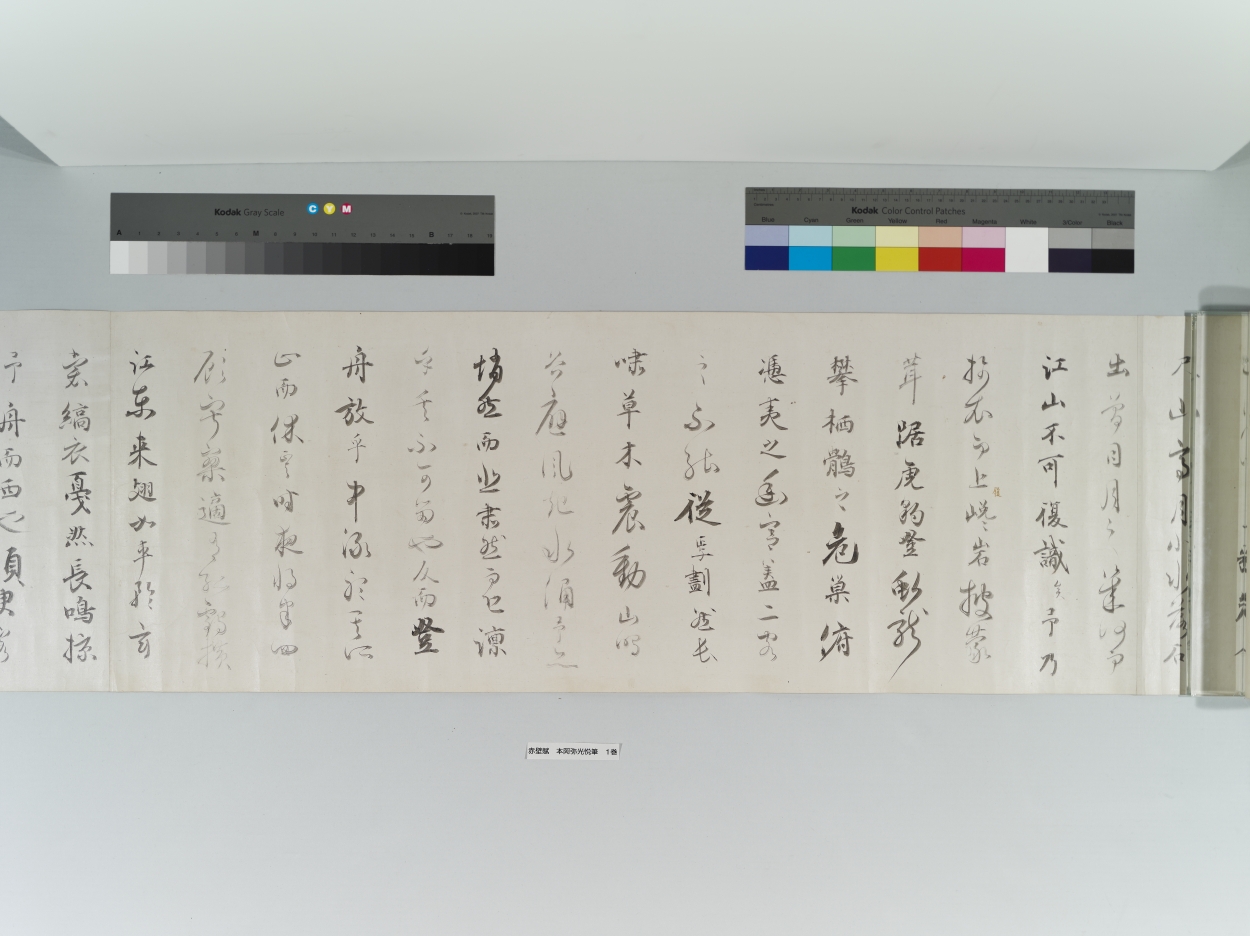 Kodak Gray Scale
C Y M
A 1 2 3 4 5 6 M 8 9 10 11 12 13 14 15 B 17 18 19
Kodak Color Control Patches
Blue Cyan Green Yellow Red Magenta White 3/Color Black
尺山高月小水落石
出曾日月之幾何而
江山不可復識矣予乃
攝衣而上巉岩披蒙
茸踞虎豹登虬龍
攀栖鶻之危巣俯
憑夷之幽宮蓋二客
之不能從焉劃然長
嘯草木震動山鳴
谷應風起水涌予亦
悄然而悲肅然而恐凛
乎其不可留也反而登
舟放乎中流聽其所
止而休焉時夜將半四
顧寂寥適有孤鶴横
江東来翅如車輪玄
裳縞衣戛然長鳴掠
予舟而西也須臾客
赤壁賦 本阿弥光悦筆 1巻